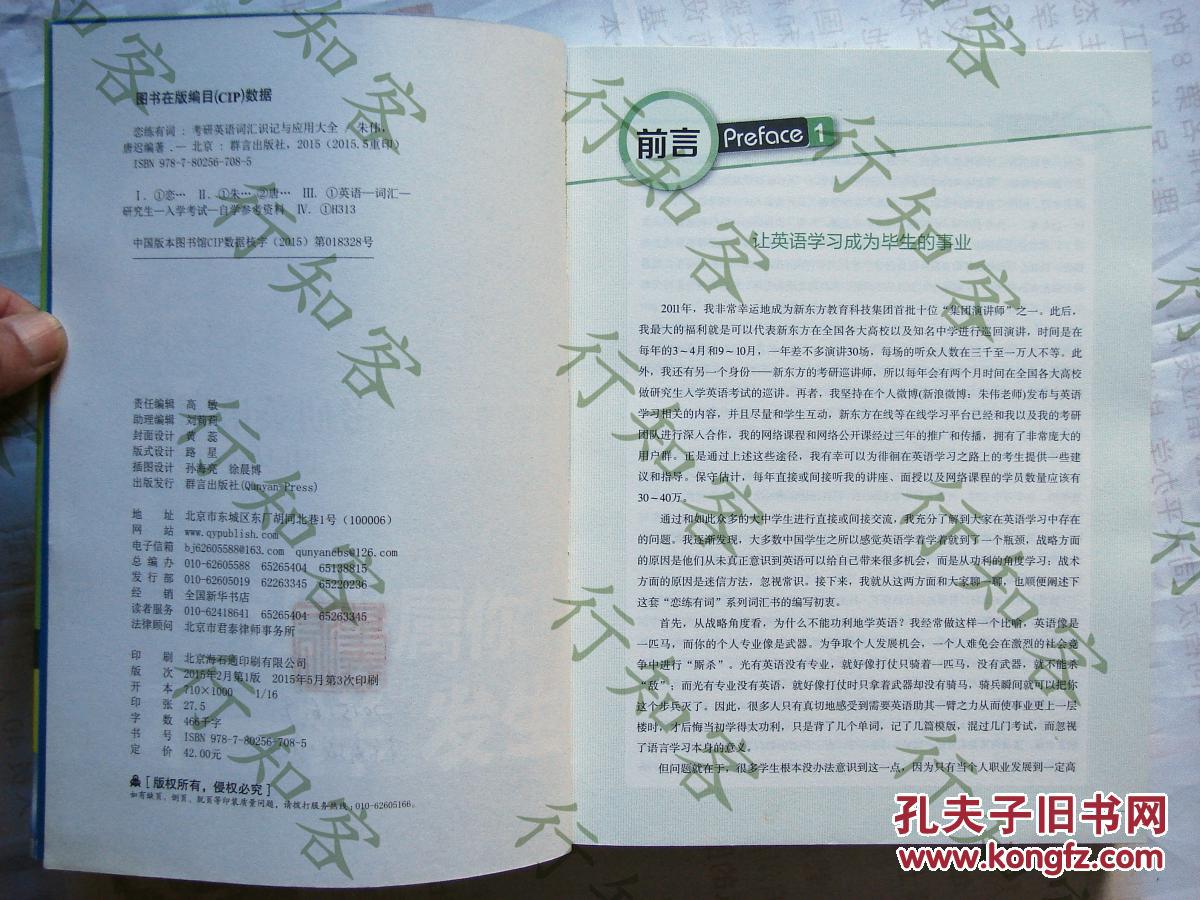 图书在版编目(CIP)数据
恋练有词：考研英语词汇识记与应用大全 / 朱伟，
唐迟编著．—北京：群言出版社，2015（2015.5重印）
ISBN 978-7-80256-708-5
Ⅰ．①恋… Ⅱ．①朱… ②唐… Ⅲ．①英语—词汇—
研究生—入学考试—自学参考资料 Ⅳ．①H313
中国版本图书馆CIP数据核字（2015）第018328号
责任编辑 高 敏
助理编辑 刘莉莉
封面设计 黄 蕊
版式设计 路 星
插图设计 孙海亮 徐晨博
出版发行 群言出版社(Qunyan Press)
地 址 北京市东城区东厂胡同北巷1号（100006）
网 站 www.qypublish.com
电子信箱 bj62605588@163.com qunyancbs@126.com
总 编 办 010-62605588 65265404 65138815
发 行 部 010-62605019 62263345 65220236
经 销 全国新华书店
读者服务 010-62418641 65265404 65263345
法律顾问 北京市君泰律师事务所
印 刷 北京海石通印刷有限公司
版 次 2015年2月第1版 2015年5月第3次印刷
开 本 710×1000 1/16
印 张 27.5
字 数 466千字
书 号 ISBN 978-7-80256-708-5
定 价 42.00元
[ 版权所有，侵权必究 ]
如有缺页、倒页、脱页等印装质量问题，请拨打服务热线：010-62605166。
前言 Preface 1
让英语学习成为毕生的事业
2011年，我非常幸运地成为新东方教育科技集团首批十位“集团演讲师”之一。此后，
我最大的福利就是可以代表新东方在全国各大高校以及知名中学进行巡回演讲，时间是在
每年的3～4月和9～10月，一年差不多演讲30场，每场的听众人数在三千至一万人不等。此
外，我还有另一个身份——新东方的考研巡讲师，所以每年会有两个月时间在全国各大高校
做研究生入学英语考试的巡讲。再者，我坚持在个人微博(新浪微博：朱伟老师)发布与英语
学习相关的内容，并且尽量和学生互动，新东方在线等在线学习平台已经和我以及我的考研
团队进行深入合作，我的网络课程和网络公开课经过三年的推广和传播，拥有了非常庞大的
用户群。正是通过上述这些途径，我有幸可以为徘徊在英语学习之路上的考生提供一些建
议和指导。保守估计，每年直接或间接听我的讲座、面授以及网络课程的学员数量应该有
30～40万。
通过和如此众多的大中学生进行直接或间接交流，我充分了解到大家在英语学习中存在
的问题。我逐渐发现，大多数中国学生之所以感觉英语学着学着就到了一个瓶颈，战略方面
的原因是他们从未真正意识到英语可以给自己带来很多机会，而是从功利的角度学习；战术
方面的原因是迷信方法，忽视常识。接下来，我就从这两方面和大家聊一聊，也顺便阐述下
这套“恋练有词”系列词汇书的编写初衷。
首先，从战略角度看，为什么不能功利地学英语？我经常做这样一个比喻，英语像是
一匹马，而你的个人专业像是武器。为争取个人发展机会，一个人难免会在激烈的社会竞
争中进行“厮杀”。光有英语没有专业，就好像打仗只骑着一匹马，没有武器，就不能杀
“敌”；而光有专业没有英语，就好像打仗时只拿着武器却没有骑马，骑兵瞬间就可以把你
这个步兵灭了。因此，很多人只有真切地感受到需要英语助其一臂之力从而使事业更上一层
楼时，才后悔当初学得太功利，只是背了几个单词，记了几篇模版，混过几门考试，而忽视
了语言学习本身的意义。
但问题就在于，很多学生根本没办法意识到这一点，因为只有当个人职业发展到一定高
行知客
孔夫子旧书网
www.kongfz.com